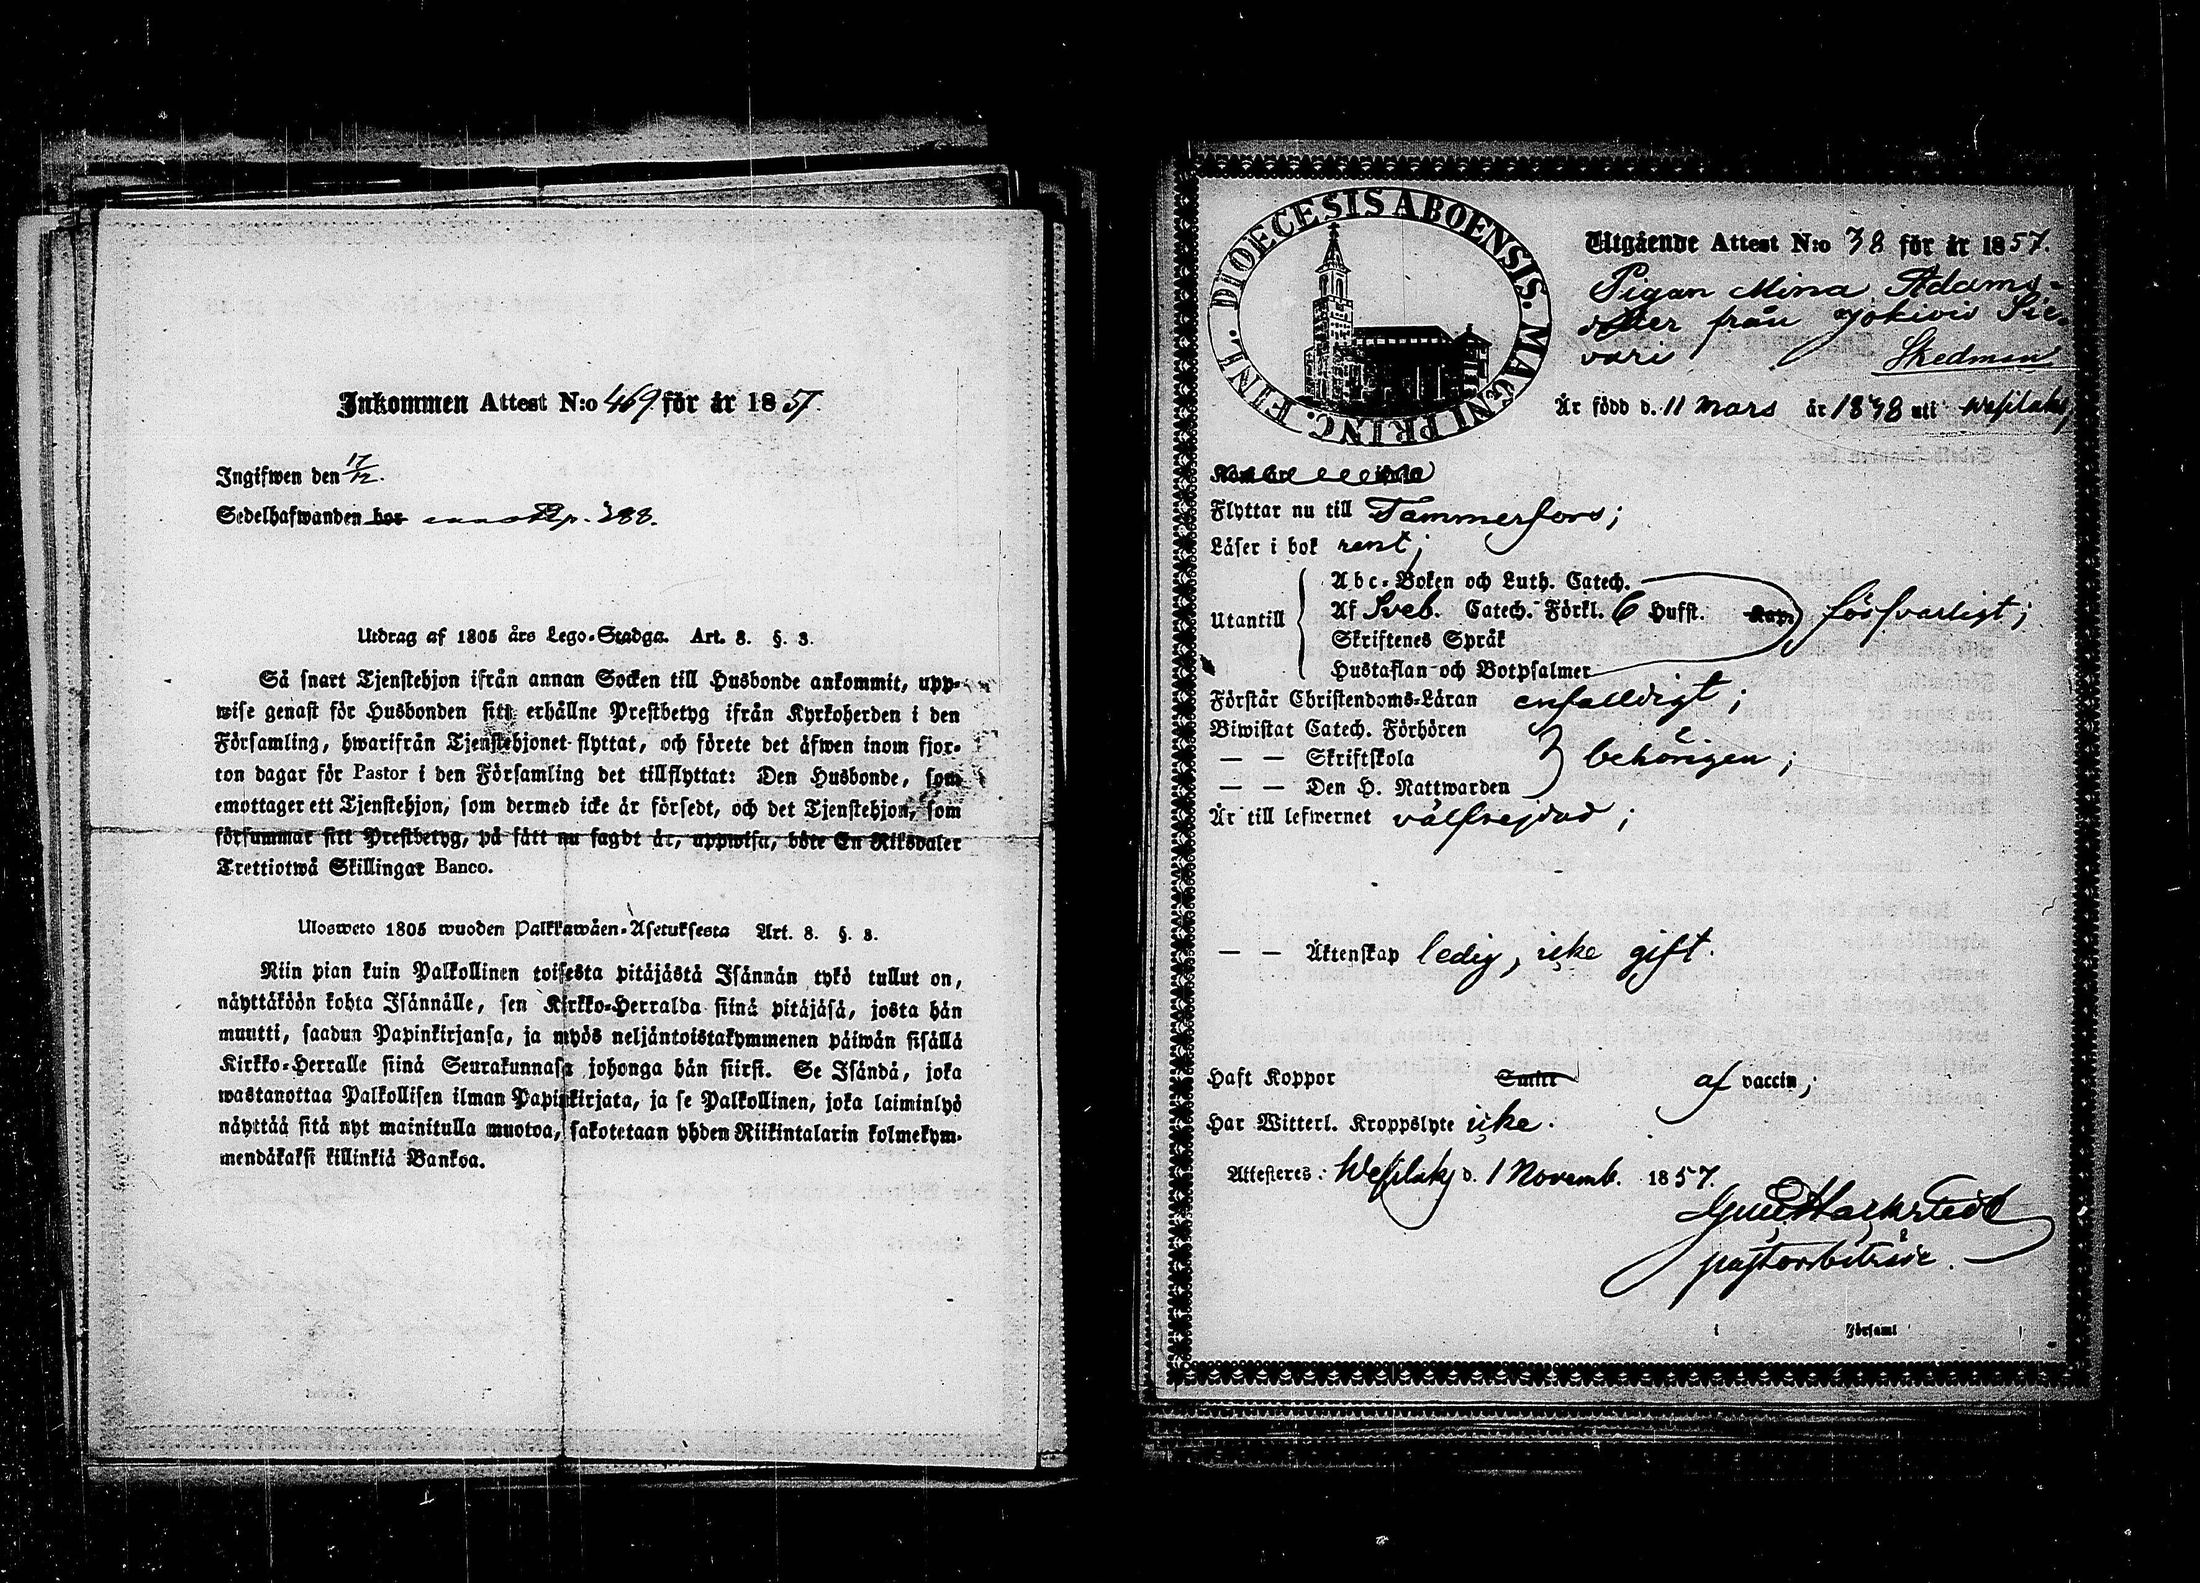 Inkommen Attest N:o 469 för år 1857.
Ingifwen den 17/12.
Sedelhafwanden bor p. 288.
Utdrag af 1805 års Lego-Stadga. Art. 8. §. 3.
Så snart Tjenstehjon ifrån annan Socken till Husbonde ankommit, upp-
wise genast för Husbonden sitt erhållne Prestbetyg ifrån Kyrkoherden i den
Församling, hwarifrån Tjenstehjonet flyttat, och förete det äfwen inom fjor-
ton dagar för Pastor i den Församling det tillflyttat: Den Husbonde, som
emottager ett Tjenstehjon, som dermed icke är försedt, och det Tjenstehjon, som
försummar sitt Prestbetyg, på sätt nu sagdt är, uppwisa, böte En Riksdaler
Trettiotwå Skillingar Banco.
Ulosweto 1805 wuoden Palkkawäen-Asetuksesta Art. 8. §. 3.
Niin pian kuin Palkollinen toisesta pitäjästä Isännän tykö tullut on,
näyttäköön kohta Isännälle, sen Kirkko-Herralda siinä pitäjäsä, josta hän
muutti, saadun Papinkirjansa, ja myös neljäntoistakymmenen päiwän sisällä
Kirkko-Herralle siinä Seurakunnasa johonga hän siirsi. Se Isändä, joka
wastanottaa Palkollisen ilman Papinkirjata, ja se Palkollinen, joka laiminlyö
näyttää sitä nyt mainitulla muotoa, sakotetaan yhden Riikintalarin kolmekym-
mendäkaksi killinkiä Bankoa.
DIOECESIS ABOENSIS. MAGNI PRINC. FINL.
Utgående Attest N:o 38 för år 1857.
Pigan Mina Adams-
dotter från Jokivis Sie-
vari Skedman
Är född d. 11 Mars år 1838 uti Wesilaks,
Flyttar nu till Tammerfors;
Läser i bok rent;
Utantill
Abc-Boken och Luth. Catech.
Af Sveb. Catech. Förkl. 6 Hufst. Kap. försvarligt;
Skriftenes Språk
Hustaflan och Botpsalmer
Förstår Christendoms-Läran enfalldigt;
Biwistat Catech. Förhören
— — Skriftskola behörigen;
— — Den H. Nattwarden
Är till lefwernet välfrejdad;
— — Äktenskap ledig, icke gift.
Haft Koppor Smitt af vaccin;
Har Witterl. Kroppslyte icke.
Attesteres: Wesilaks d. 1 Novemb. 1857.
Hackstedt
pastorsbiträde.
i Församl